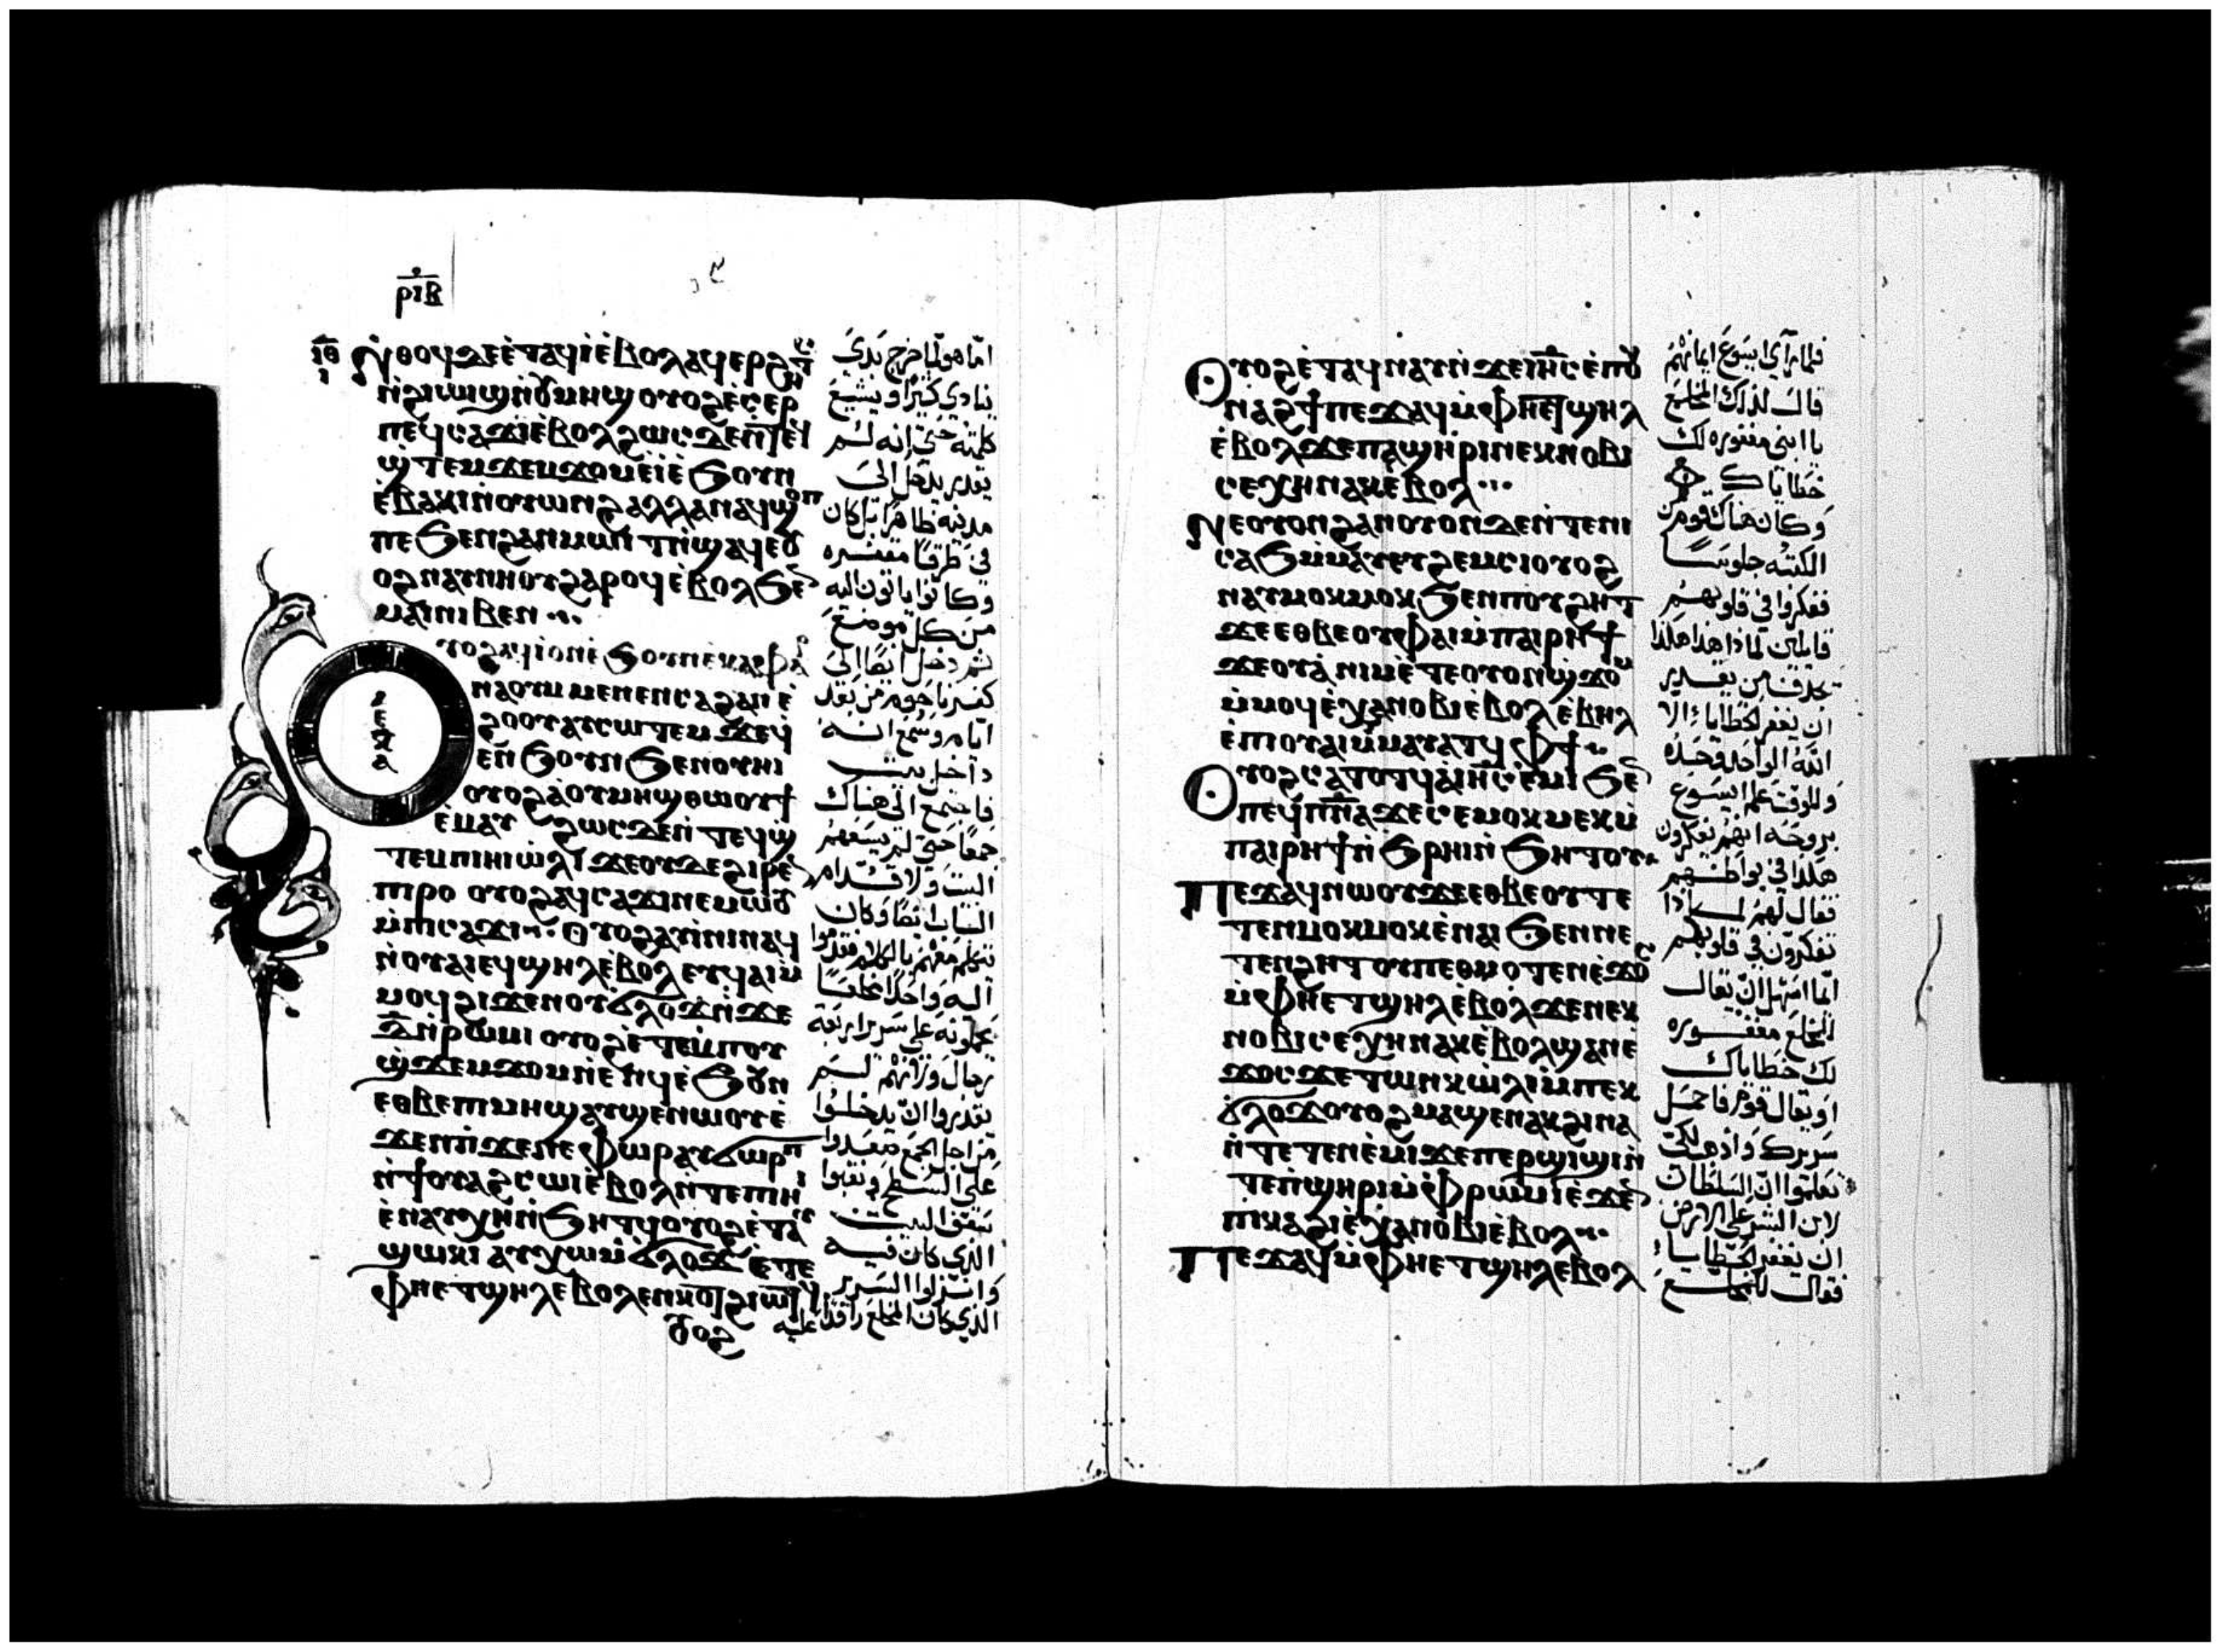 ⲣⲓⲃ
ⲓⲑ
ⲛ̀ⲑⲟϥⲇⲉⲉ̀ⲧⲁϥⲓ̀ⲉ̀ⲃⲟⲗⲁϥⲉⲣϩⲏⲧ
ⲛ̀ϩⲓⲱⲓϣⲛ̀ⲟⲩⲙⲏϣⲟⲩⲟϩⲉ̀ⲥⲉⲣ
ⲡⲉϥⲥⲁϫⲓⲉ̀ⲃⲟⲗϩⲱⲥⲇⲉⲛ̀ⲧⲉϥ
ϣ̀ⲧⲉⲙϫⲉⲙϫⲟⲙⲉ̀ⲓⲉ̀ϧⲟⲩⲛ
ⲉ̀ⲃⲁⲕⲓⲛ̀ⲟⲩⲱⲛϩⲁⲗⲗⲁⲛⲁϥϣⲟⲡ
ⲡⲉϧⲉⲛϩⲁⲛⲙⲱⲓⲧⲛ̀ϣⲁϥⲉⲟⲩ
ⲟϩⲛⲁⲩⲛⲏⲟⲩϩⲁⲣⲟϥⲉ̀ⲃⲟⲗϧⲉⲛ
ⲙⲁⲓⲛⲓⲃⲉⲛ
ⲟⲩⲟϩⲁϥⲓⲟⲛⲉ̀ϧⲟⲩⲛⲉ̀ⲕⲁⲫⲁⲣ
ⲛⲁⲟⲩⲙⲙⲉⲛⲉⲛⲥⲁϩⲁⲛⲉ̀
ϩⲟⲟⲩⲁⲩⲥⲱⲧⲉⲙϫⲉϥ
ⲉⲛ̀ϧⲟⲩⲛϧⲉⲛⲟⲩⲏⲓ
ⲟⲩⲟϩⲁⲟⲩⲙⲏϣⲑⲱⲟⲩϯ
ⲉ̀ⲙⲁⲩ ϩⲱⲥⲇⲉⲛ̀ⲧⲉϥϣ̀
ⲧⲉⲙⲡⲓⲏⲓⲱ̀ⲗⲓ ϫⲉⲟⲩⲇⲉϩⲓⲣⲉⲛ
ⲡⲣⲟ ⲟⲩⲟϩⲁϥⲥⲁϫⲓⲛⲉⲙⲱⲟⲩ
ⲙ̀ⲡⲥⲁϫⲓ ⲟⲩⲟϩⲁⲩⲓ̀ⲛⲓⲛⲁϥ
ⲛ̀ⲟⲩⲁⲓⲉϥϣⲏⲗⲉ̀ⲃⲟⲗ ⲉⲩϥⲁⲓⲙ̀
ⲙⲟϥϩⲓϫⲉⲛⲟⲩϭⲗⲟϫⲛ̀ϫⲉ
ⲇ̅ⲛ̀ⲣⲱⲙⲓ ⲟⲩⲟϩⲉ̀ⲧⲉⲙⲡⲟⲩ
ϣ̀ϫⲉⲙϫⲟⲙⲛ̀ⲉ̀ⲛϥⲉ̀ϧⲟⲩⲛ
ⲉⲑⲃⲉⲡⲓⲙⲏϣⲁⲩϣⲉⲛⲱⲟⲩⲉ̀
ϫⲉⲛⲡⲓϫⲉⲛⲉⲫⲱⲣⲁⲩϭⲱⲣⲡ
ⲛ̀ϯⲟⲩⲁϩⲥⲱⲓⲉ̀ⲃⲟⲗⲛ̀ⲧⲉⲡⲓⲏⲓ
ⲉ̀ⲛⲁⲩⲭⲏⲛ̀ϧⲏⲧϥⲟⲩⲟϩⲉ̀ⲧⲁⲩ
ϣⲱⲕⲓ ⲁⲩⲭⲱⲙ̀ⲡⲓϭⲗⲟϫ ⲉ̀ⲧⲉ
ⲫⲏⲉⲧϣⲏⲗⲉ̀ⲃⲟⲗⲉⲛⲕⲟⲧϩⲓⲱⲧϥ
ⲟⲩⲟϩ
ⲇⲉⲕⲁ
امّا هو لمّا خرج بَدَي
ينادي كثيرًا ويشيع
كلمته حتّى انه لم
يقدر يدخل الى
مدينه ظاهرًا بل كان
في طرقًا مقفره
وكانوا ياتون اليه
من كل موضع
ثم دخل ايضًا الى
كفرناحوم من بعد
ايام وسُمع انه
داخل بيت
فاجتمع الى هناك
جمعًا حتى لم يسعهم
البيت ولا قدام
الباب ايضًا وكان
يتكلم معهم بالكلام فقدموا
اليه واحدًا مخلعًا
يحملونه على سرير اربعة
رجال واذ انهم لم
يقدروا ان يدخلوا
من اجل الجمع صعدوا
على السطح ونقبوا
سقف البيت
الذي كان فيه
وانزلوا السرير
الذي كان المخلع راقدًا عليه
ⲟⲩⲟϩⲉ̀ⲧⲁϥⲛⲁⲩⲛ̀ϫⲉⲓⲏⲥⲉ̀ⲡⲟⲩ
ⲛⲁϩϯⲡⲉϫⲁϥⲙ̀ⲫⲏⲉⲧϣⲏⲗ
ⲉ̀ⲃⲟⲗϫⲉⲡⲁϣⲏⲣⲓⲛⲉⲕⲛⲟⲃⲓ
ⲥⲉⲭⲏⲛⲁⲕⲉ̀ⲃⲟⲗ
ⲛⲉⲟⲩⲟⲛϩⲁⲛⲟⲩⲟⲛⲇⲉⲛ̀ⲧⲉⲛⲓ
ⲥⲁϧⲙ̀ⲙⲁⲩⲉⲩϩⲉⲙⲥⲓⲟⲩⲟϩ
ⲛⲁⲩⲙⲟⲕⲙⲟⲕϧⲉⲛⲡⲟⲩϩⲏⲧ
ϫⲉⲉⲑⲃⲉⲟⲩⲫⲁⲓⲙ̀ⲡⲁⲓⲣⲏϯ
ϫⲉⲟⲩⲁ̀ⲛⲓⲙⲉ̀ⲧⲉⲟⲩⲟⲛϣ̀ϫⲟⲙ
ⲙ̀ⲙⲟϥⲉ̀ⲭⲁⲛⲟⲃⲓⲉ̀ⲃⲟⲗⲉ̀ⲃⲏⲗ
ⲉ̀ⲡⲓⲟⲩⲁⲓⲙ̀ⲙⲁⲩⲁⲧϥ ⲫϯ
ⲟⲩⲟϩⲥⲁⲧⲟⲧϥⲁⲓⲏⲥⲉ̀ⲙⲓ ϧⲉⲛ
ⲡⲉϥⲡⲛⲁϫⲉⲥⲉⲙⲟⲕⲙⲉⲕⲙ̀
ⲡⲁⲓⲣⲏϯⲛ̀ϧⲣⲏⲓⲛ̀ϧⲏⲧⲟⲩ
ⲡⲉϫⲁϥⲛⲱⲟⲩϫⲉⲉⲑⲃⲉⲟⲩⲧⲉ
ⲧⲉⲛⲙⲟⲕⲙⲟⲕⲉ̀ⲛⲁⲓ ϧⲉⲛⲛⲉ
ⲧⲉⲛϩⲏⲧⲟⲩⲡⲉⲑⲙⲟⲧⲉⲛⲉ̀ϫⲟⲥ
ⲙ̀ⲫⲏⲉⲧϣⲏⲗⲉ̀ⲃⲟⲗϫⲉⲛⲉⲕ
ⲛⲟⲃⲓⲥⲉⲭⲏⲛⲁⲕⲉ̀ⲃⲟⲗϣⲁⲛⲉ̀
ϫⲟⲥϫⲉⲧⲱⲛⲕⲱ̀ⲗⲓⲙ̀ⲡⲉⲕ
ϭⲗⲟϫⲟⲩⲟϩⲙⲁϣⲉⲛⲁⲕϩⲓⲛⲁ
ⲛ̀ⲧⲉⲧⲉⲛⲉ̀ⲙⲓϫⲉⲡⲉⲣϣⲓϣⲓⲛ̀
ⲧⲉⲡϣⲏⲣⲓⲙ̀ⲫⲣⲱⲙⲓⲉ̀ϫⲉⲛ
ⲡⲓⲕⲁϩⲓⲉ̀ⲭⲁⲛⲟⲃⲓⲉ̀ⲃⲟⲗ
ⲡⲉϫⲁϥⲙ̀ⲫⲏⲉⲧϣⲏⲗⲉ̀ⲃⲟⲗ
فلما راي ايسوع ايمانهم
قال لذلك المخلع
يا ابني مغفوره لك
خطاياك
وكان هناك قوم من
الكتبه جلوسًا
ففكروا في قلوبهم
قايلين لماذا هذا هكذا
يجدف من يقدر
ان يغفر الخطايا الا
الله الواحد وحده
وللوقت علم ايسوع
بروحه انهم يفكرون
هكذا في بواطنهم
فقال لهم لماذا
تفكرون في قلوبكم
انما اسهل ان يقال
للمخلع مغفوره
لك خطاياك
او يقال قوم فاحمل
سريرك واذهب لكي
تعلموا ان السلطان
لابن البشر على الارض
ان يغفر الخطايا
فقال للمخلع